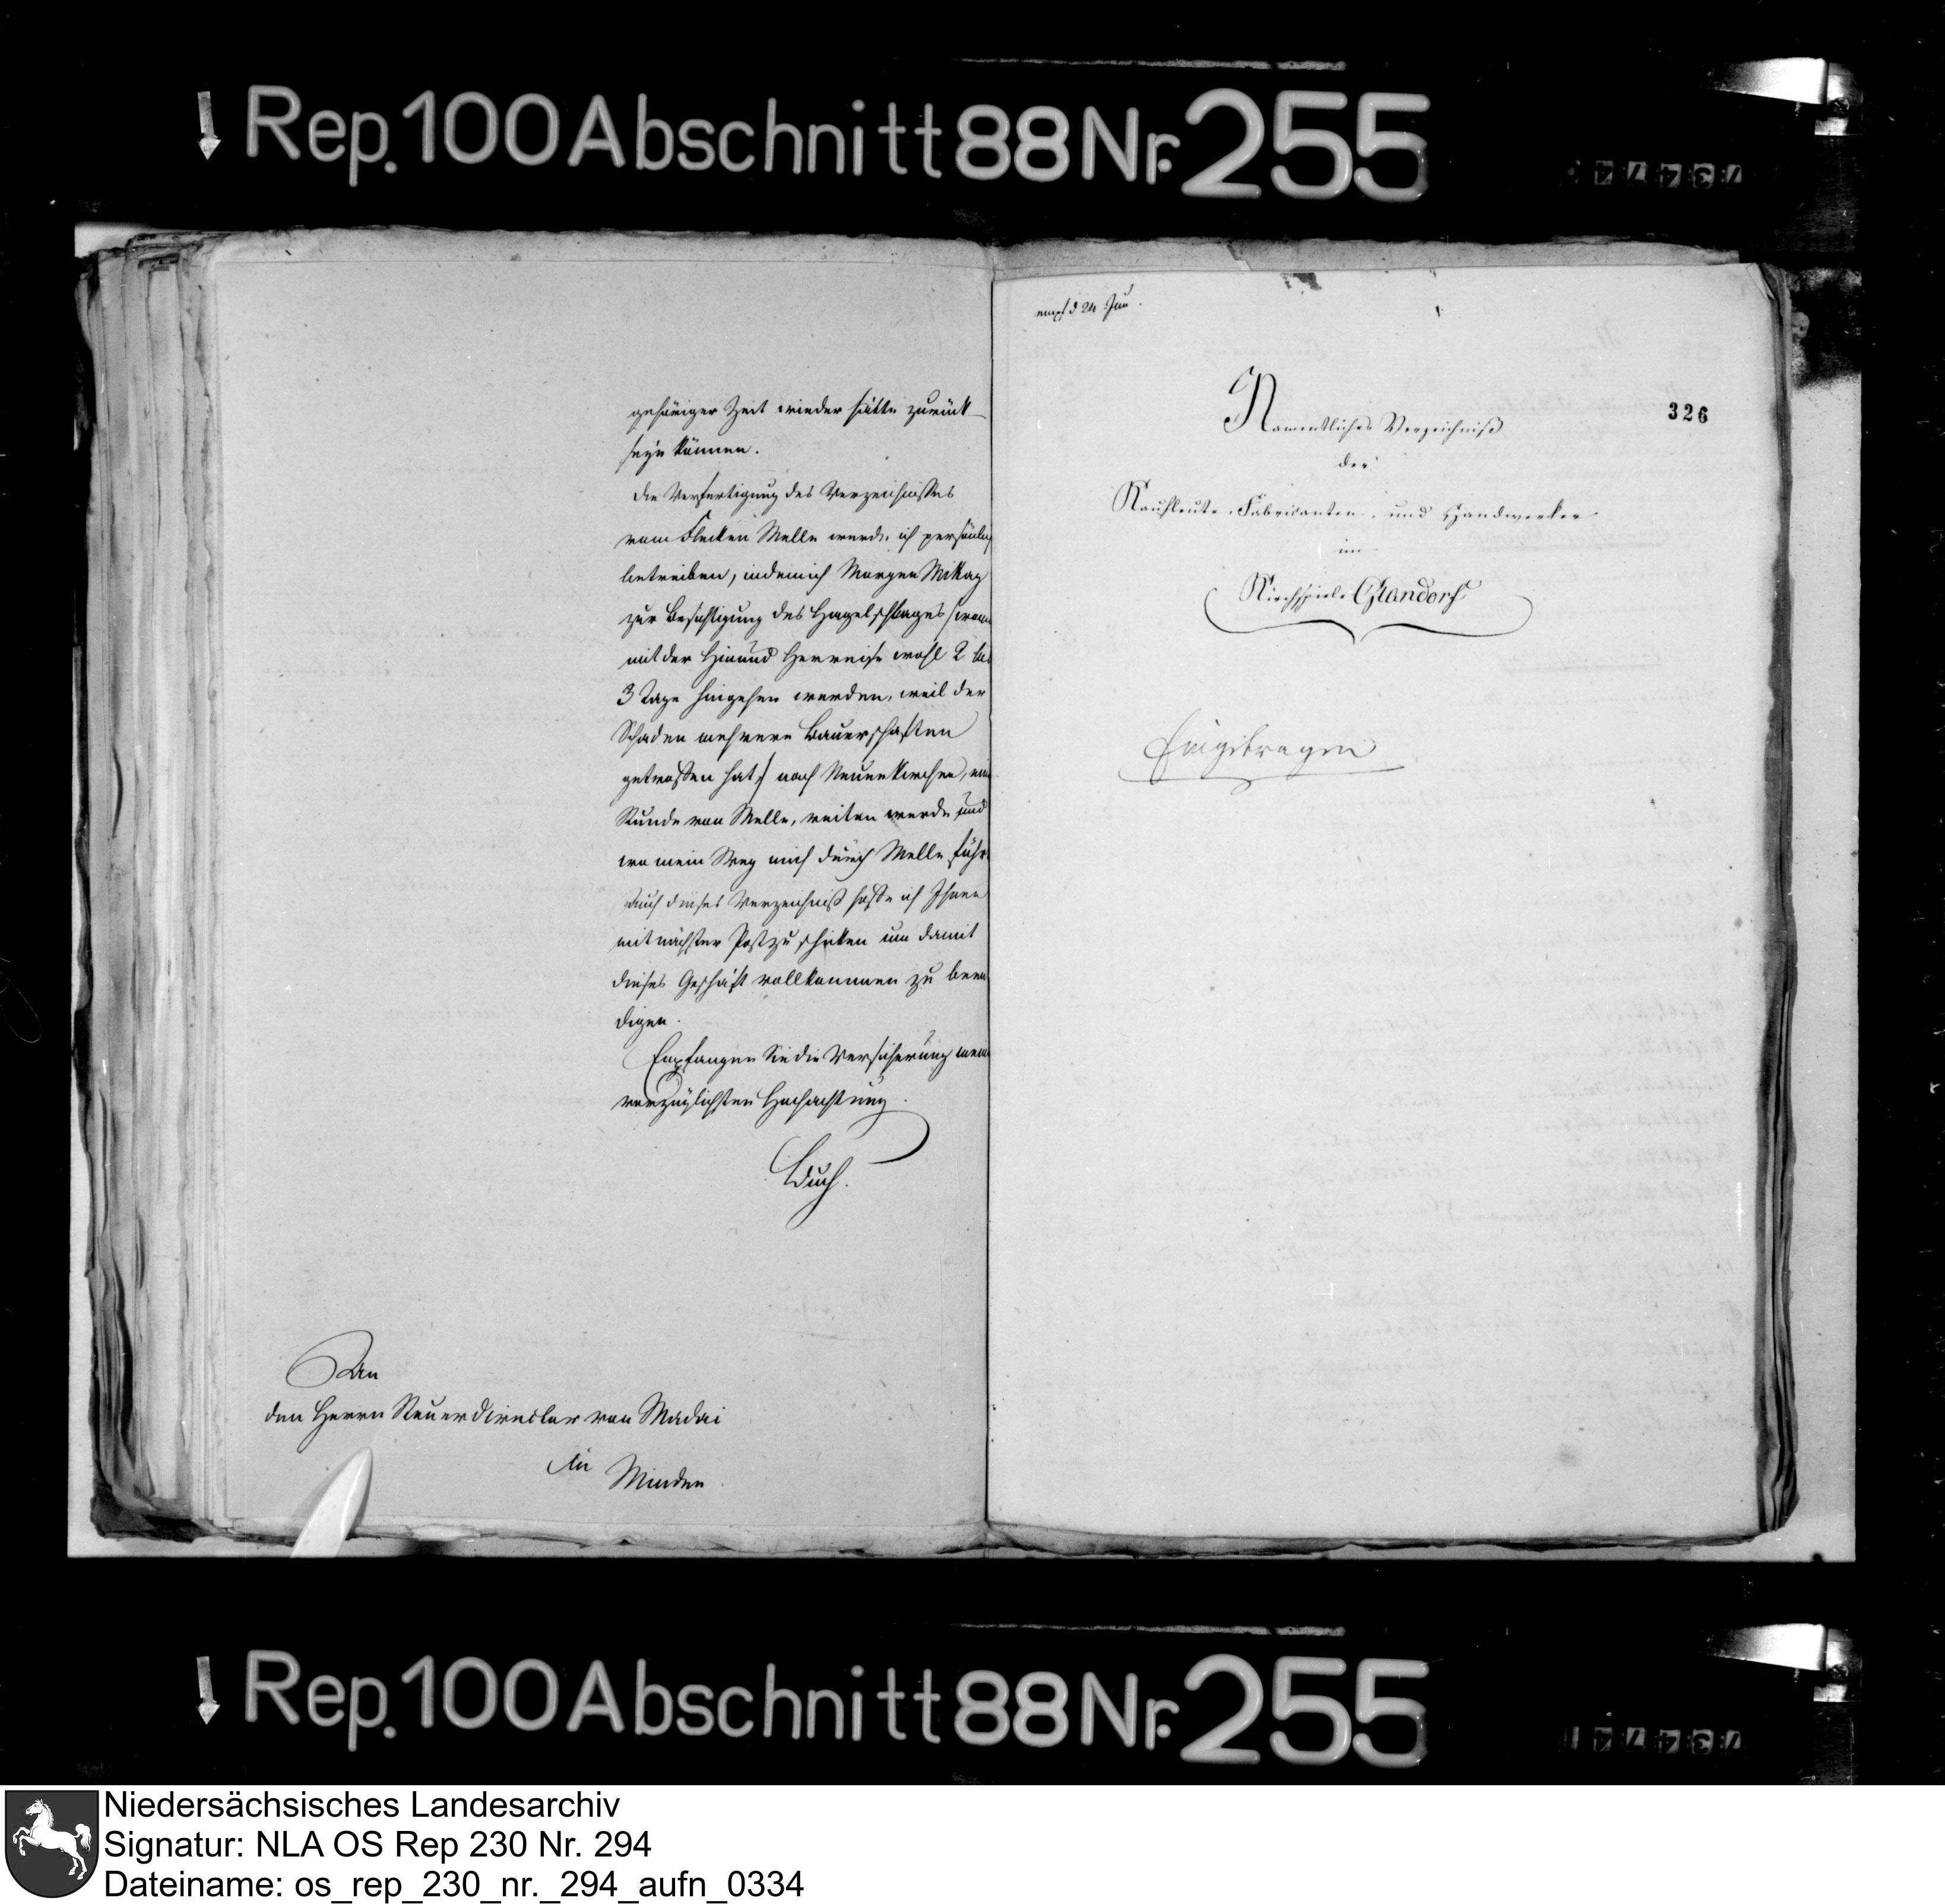 Rep. 100 Abschnitt 88 Nr. 255
gehöriger Zeit wieder hätte zurück
seyn können.
Die Verfertigung des Verzeichnisses
vom Flecken Melle werde ich persönlich
betreiben, indem ich Morgen Mittag
zur Besichtigung des Hagelschlages (wom
mit der Hin und Herreise wohl 2 bis
3 Tage hingehen werden, weil der
Schaden mehrere Bauerschaften
getroffen hat) nach Neuenkirchen, eine
Stunde von Melle, reiten werde und
wo mein Weg mich durch Melle führt
Auch dieses Verzeichniß hoffe ich Ihnen
mit nächster Post zu schicken um damit
dieses Geschäft vollkommen zu been
digen.
Empfangen Sie die Versicherung mein
vorzüglichsten Hochachtung.
Buch.
An
den Herrn Steuerdirector von Madai
in Minden
empf d 24 Jun.
326
Namentliches Verzeichniß
der
Kaufleute, Fabricanten, und Handwerker
im
Kirchspiele Glandorf
Eingetragen
Rep. 100 Abschnitt 88 Nr. 255
Niedersächsisches Landesarchiv
Signatur: NLA OS Rep 230 Nr. 294
Dateiname: os_rep_230_nr._294_aufn_0334